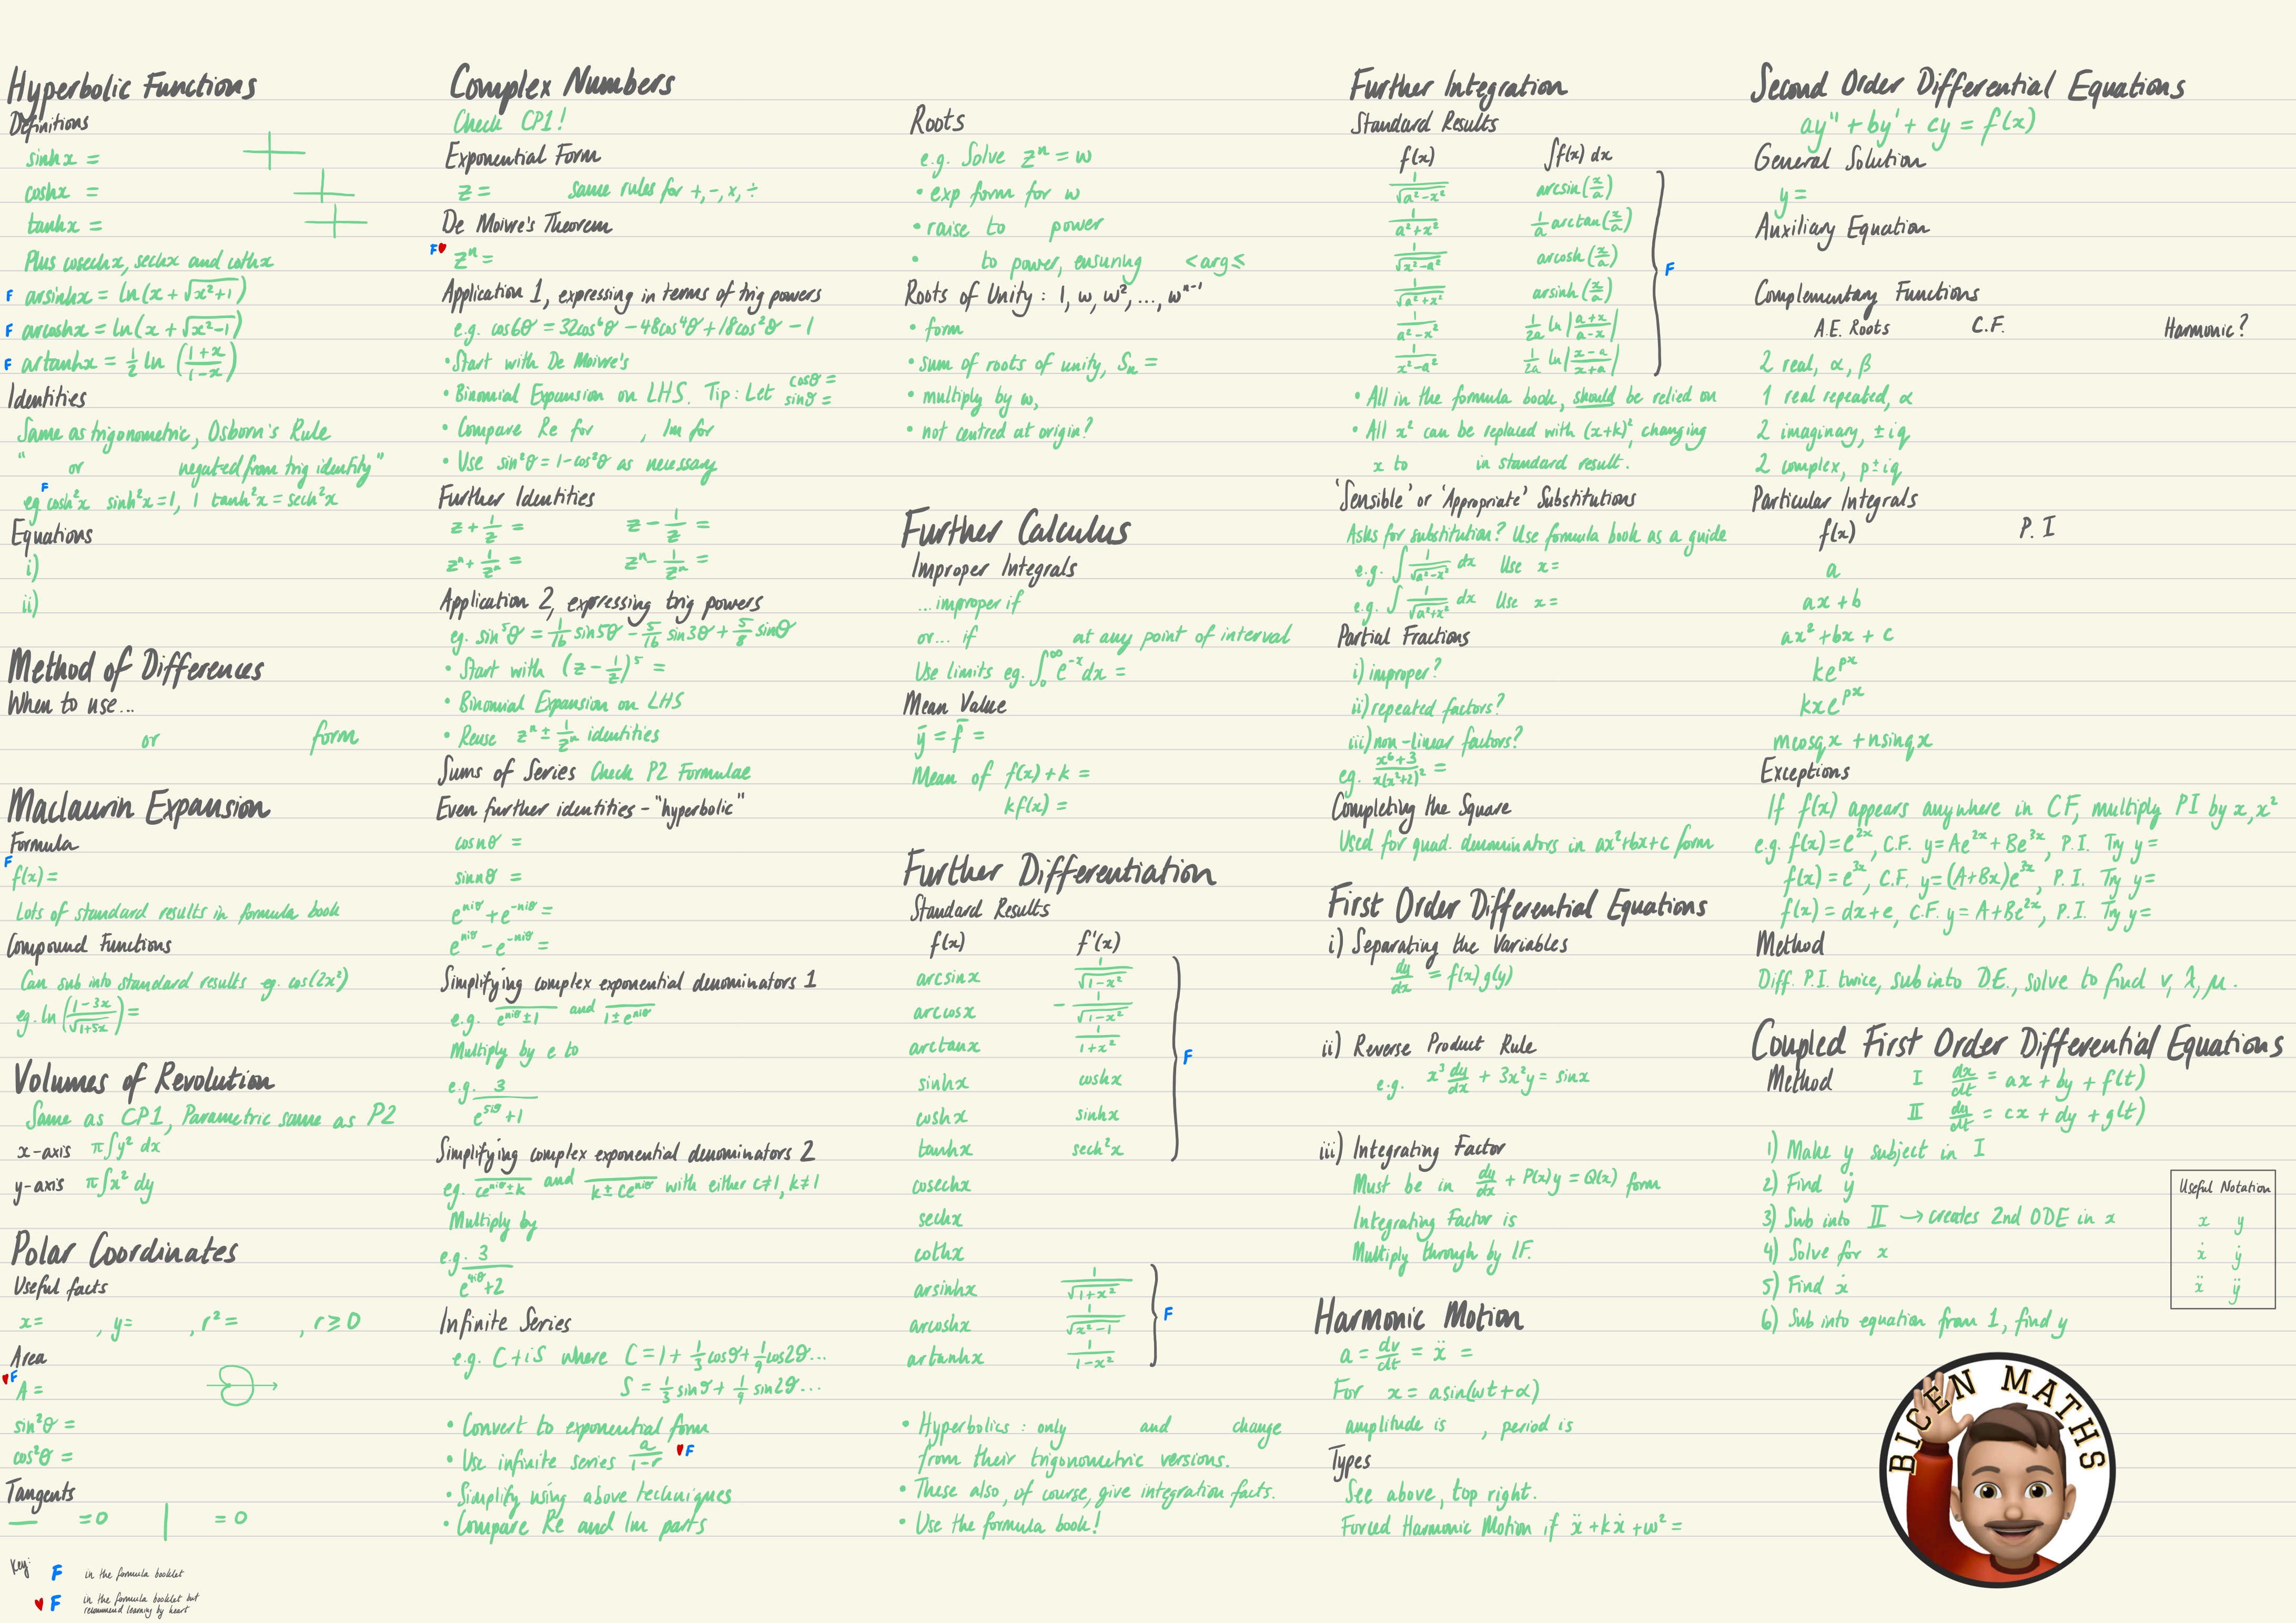 Hyperbolic Functions
Definitions
sinhx =
coshx =
tanhx =
Plus cosechx, sechx and cothx
F arsinhx = ln(x + √(x²+1))
F arcoshx = ln(x + √(x²-1))
F artanhx = 1/2 ln((1+x)/(1-x))
Identities
Same as trigonometric, Osborn's Rule
" or negated from trig identity"
F
eg cosh²x sinh²x = 1, 1 tanh²x = sech²x
Equations
i)
ii)
Method of Differences
When to use...
or form
Maclaurin Expansion
Formula
F
f(x) =
Lots of standard results in formula book
Compound Functions
Can sub into standard results eg. cos(2x²)
eg. ln((1-3x)/√(1+5x)) =
Volumes of Revolution
Same as CP1, Parametric same as P2
x-axis π∫y² dx
y-axis π∫x² dy
Polar Coordinates
Useful facts
x= , y= , r² = , r ≥ 0
Area
♥F
A =
sin²θ =
cos²θ =
Tangents
— = 0 | = 0
Key:
F in the formula booklet
♥F in the formula booklet but
recommend learning by heart
Complex Numbers
Check CP1!
Exponential Form
z = same rules for +, -, ×, ÷
De Moivre's Theorem
F♥
zⁿ =
Application 1, expressing in terms of trig powers
e.g. cos6θ = 32cos⁶θ - 48cos⁴θ + 18cos²θ - 1
• Start with De Moivre's
• Binomial Expansion on LHS. Tip: Let cosθ = sinθ =
• Compare Re for , Im for
• Use sin²θ = 1-cos²θ as necessary
Further Identities
z + 1/z = z - 1/z =
zⁿ + 1/zⁿ = zⁿ - 1/zⁿ =
Application 2, expressing trig powers
eg. sin⁵θ = 1/16 sin5θ - 5/16 sin3θ + 5/8 sinθ
• Start with (z - 1/z)⁵ =
• Binomial Expansion on LHS
• Reuse zⁿ ± 1/zⁿ identities
Sums of Series Check P2 Formulae
Even further identities - "hyperbolic"
cosnθ =
sinnθ =
e^(niθ) + e^(-niθ) =
e^(niθ) - e^(-niθ) =
Simplifying complex exponential denominators 1
e.g. 1/(e^(niθ) ± 1) and 1/(1 ± e^(niθ))
Multiply by e to
e.g. 3/(e^(5iθ) + 1)
Simplifying complex exponential denominators 2
eg. 1/(ce^(niθ) ± k) and 1/(k ± ce^(niθ)) with either c≠1, k≠1
Multiply by
e.g. 3/(e^(4iθ) + 2)
Infinite Series
e.g. C+iS where C = 1 + 1/3 cosθ + 1/9 cos2θ...
S = 1/3 sinθ + 1/9 sin2θ...
• Convert to exponential form
• Use infinite series a/(1-r) ♥F
• Simplify using above techniques
• Compare Re and Im parts
Roots
e.g. Solve zⁿ = w
• exp form for w
• raise to power
• to power, ensuring < arg ≤
Roots of Unity : 1, w, w², ..., wⁿ⁻¹
• form
• sum of roots of unity, Sₙ =
• multiply by w,
• not centred at origin?
Further Calculus
Improper Integrals
... improper if
or... if at any point of interval
Use limits eg. ∫₀^∞ e^(-x) dx =
Mean Value
ȳ = f̄ =
Mean of f(x) + k =
kf(x) =
Further Differentiation
Standard Results
f(x) f'(x)
arcsinx 1/√(1-x²)
arccosx - 1/√(1-x²)
arctanx 1/(1+x²)
F
sinhx coshx
coshx sinhx
tanhx sech²x
cosechx
sechx
cothx
arsinhx 1/√(1+x²)
arcoshx 1/√(x²-1) F
artanhx 1/(1-x²)
• Hyperbolics : only and change
from their trigonometric versions.
• These also, of course, give integration facts.
• Use the formula book!
Further Integration
Standard Results
f(x) ∫f(x) dx
1/√(a²-x²) arcsin(x/a)
1/(a²+x²) 1/a arctan(x/a)
1/√(x²-a²) arcosh(x/a) F
1/√(a²+x²) arsinh(x/a)
1/(a²-x²) 1/2a ln|(a+x)/(a-x)|
1/(x²-a²) 1/2a ln|(x-a)/(x+a)|
• All in the formula book, should be relied on
• All x² can be replaced with (x+k)², changing
x to in standard result.
'Sensible' or 'Appropriate' Substitutions
Asks for substitution? Use formula book as a guide
e.g. ∫ 1/√(a²-x²) dx Use x =
e.g. ∫ 1/√(a²+x²) dx Use x =
Partial Fractions
i) improper?
ii) repeated factors?
iii) non-linear factors?
eg. (x⁶+3)/(x(x²+2)²) =
Completing the Square
Used for quad. denominators in ax²+bx+c form
First Order Differential Equations
i) Separating the Variables
dy/dx = f(x)g(y)
ii) Reverse Product Rule
e.g. x³ dy/dx + 3x²y = sinx
iii) Integrating Factor
Must be in dy/dx + P(x)y = Q(x) form
Integrating Factor is
Multiply through by IF.
Harmonic Motion
a = dv/dt = ẍ =
For x = asin(ωt + α)
amplitude is , period is
Types
See above, top right.
Forced Harmonic Motion if ẍ + kẋ + ω² =
Second Order Differential Equations
ay'' + by' + cy = f(x)
General Solution
y =
Auxiliary Equation
Complementary Functions
A.E. Roots C.F. Harmonic?
2 real, α, β
1 real repeated, α
2 imaginary, ±iq
2 complex, p±iq
Particular Integrals
f(x) P.I
a
ax + b
ax² + bx + c
ke^(px)
kxe^(px)
mcosqx + nsinqx
Exceptions
If f(x) appears anywhere in CF, multiply PI by x, x²
e.g. f(x) = e^(2x), C.F. y = Ae^(2x) + Be^(3x), P.I. Try y =
f(x) = e^(3x), C.F. y = (A+Bx)e^(3x), P.I. Try y =
f(x) = dx+e, C.F. y = A+Be^(2x), P.I. Try y =
Method
Diff. P.I. twice, sub into D.E., solve to find ν, λ, μ.
Coupled First Order Differential Equations
Method I dx/dt = ax + by + f(t)
II dy/dt = cx + dy + g(t)
1) Make y subject in I
2) Find ẏ
3) Sub into II → creates 2nd ODE in x
4) Solve for x
5) Find ẋ
6) Sub into equation from 1, find y
Useful Notation
x y
ẋ ẏ
ẍ ÿ
BICEN MATHS